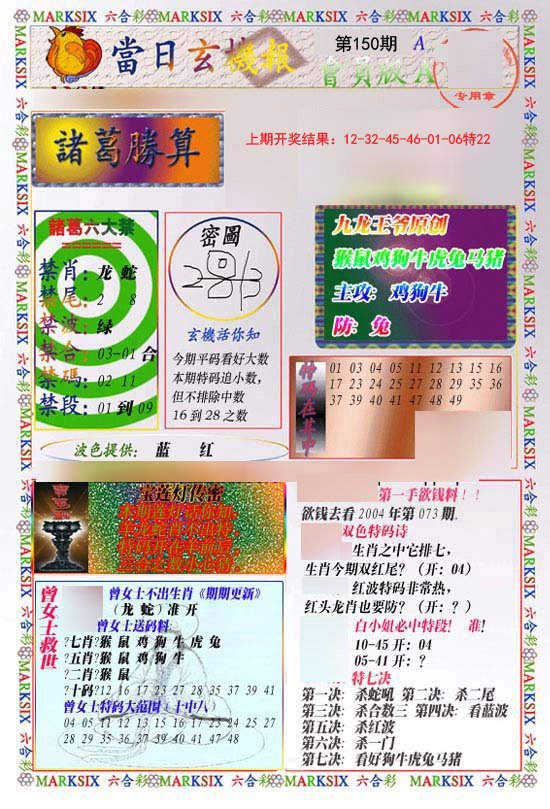 MARKSIX 六合彩 MARKSIX 六合彩 MARKSIX 六合彩 MARKSIX 六合彩
當日玄機報
第150期 A
會員版A
专用章
諸葛勝算
上期开奖结果：12-32-45-46-01-06特22
諸葛六大禁
禁肖：龙 蛇
禁尾：2 8
禁波：绿
禁合：03-01合
禁碼：02 11
禁段：01到09
密圖
玄機話你知
今期平码看好大数
本期特码追小数，
但不排除中数
16到28之数
九龙王爷原创
猴鼠鸡狗牛虎兔马猪
主攻：鸡狗牛
防：兔
特码在其中
01 03 04 05 11 12 13 15 16
17 23 24 25 27 28 29 35 36
37 39 40 41 47 48 49
波色提供： 蓝 红
宝莲灯传密
曾女士救世
曾女士不出生肖《期期更新》
（龙 蛇）准开
曾女士送码料：
?七肖?猴鼠鸡狗牛虎兔
?五肖?猴鼠鸡狗牛
?二肖?猴鼠
?十码?12 16 17 23 27 28 35 37 39 41
曾女士特码大范围（十中八）
04 05 11 12 13 15 16 17 23 24 25 27
28 29 35 36 37 39 40 41 47 48
第一手欲钱料！！
欲钱去看2004年第073期.
双色特码诗
生肖之中它排七，
生肖今期双红尾？（开：04）
红波特码非常热，
红头龙肖也要防？（开：？）
白小姐必中特段！ 准！
10-45开：04
05-41开：？
特七决
第一决：杀蛇吼 第二决：杀二尾
第三决：杀合数三 第四决：看蓝波
第五决：杀红波
第六决：杀一门
第七决：看好狗牛虎兔马猪
MARKSIX 六合彩 MARKSIX 六合彩 MARKSIX 六合彩 MARKSIX 六合彩